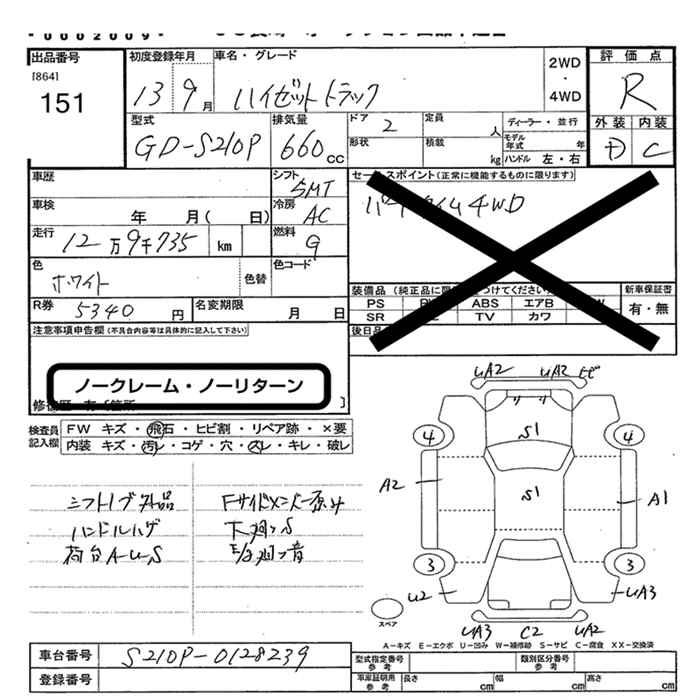 00002009
出品番号
[864]
151
初度登録年月
13 9月
車名・グレード
ハイゼットトラック
2WD
・
4WD
評価点
R
型式
GD-S210P
排気量
660cc
ドア
2
定員
人
ディーラー・並行
モデル年式
年
形状
積載
kg
ハンドル 左・右
外装 内装
D C
車歴
シフト
5MT
車検
年 月( 日)
冷房
AC
走行
12万9千735 km
燃料
G
色
ホワイト
色替
色コード
R券
5340円
名変期限
月 日
セールスポイント(正常に機能するものに限ります)
4WD
装備品
PS
ABS
エアB
SR
TV
カワ
新車保証書
有・無
後日品
注意事項申告欄(不具合内容等は具体的に記入して下さい)
ノークレーム・ノーリターン
検査員記入欄
FW キズ・飛石・ヒビ割・リペア跡・×要
内装 キズ・汚レ・コゲ・穴・スレ・キレ・破レ
シフトノブ外品
ハンドルハゲ
荷台A-U-S
下廻りS
UA2 UA2 ヒビ
S1
4 4
A2
S1
A1
3 3
U2
UA3
スペア
UA3 C2 UA2
A-キズ E-エクボ U-凹み W-補修跡 S-サビ C-腐食 XX-交換済
車台番号
S210P-0128239
登録番号
型式指定番号
参考
類別区分番号
参考
車庫証明用
参考
長さ
cm
幅
cm
高さ
cm